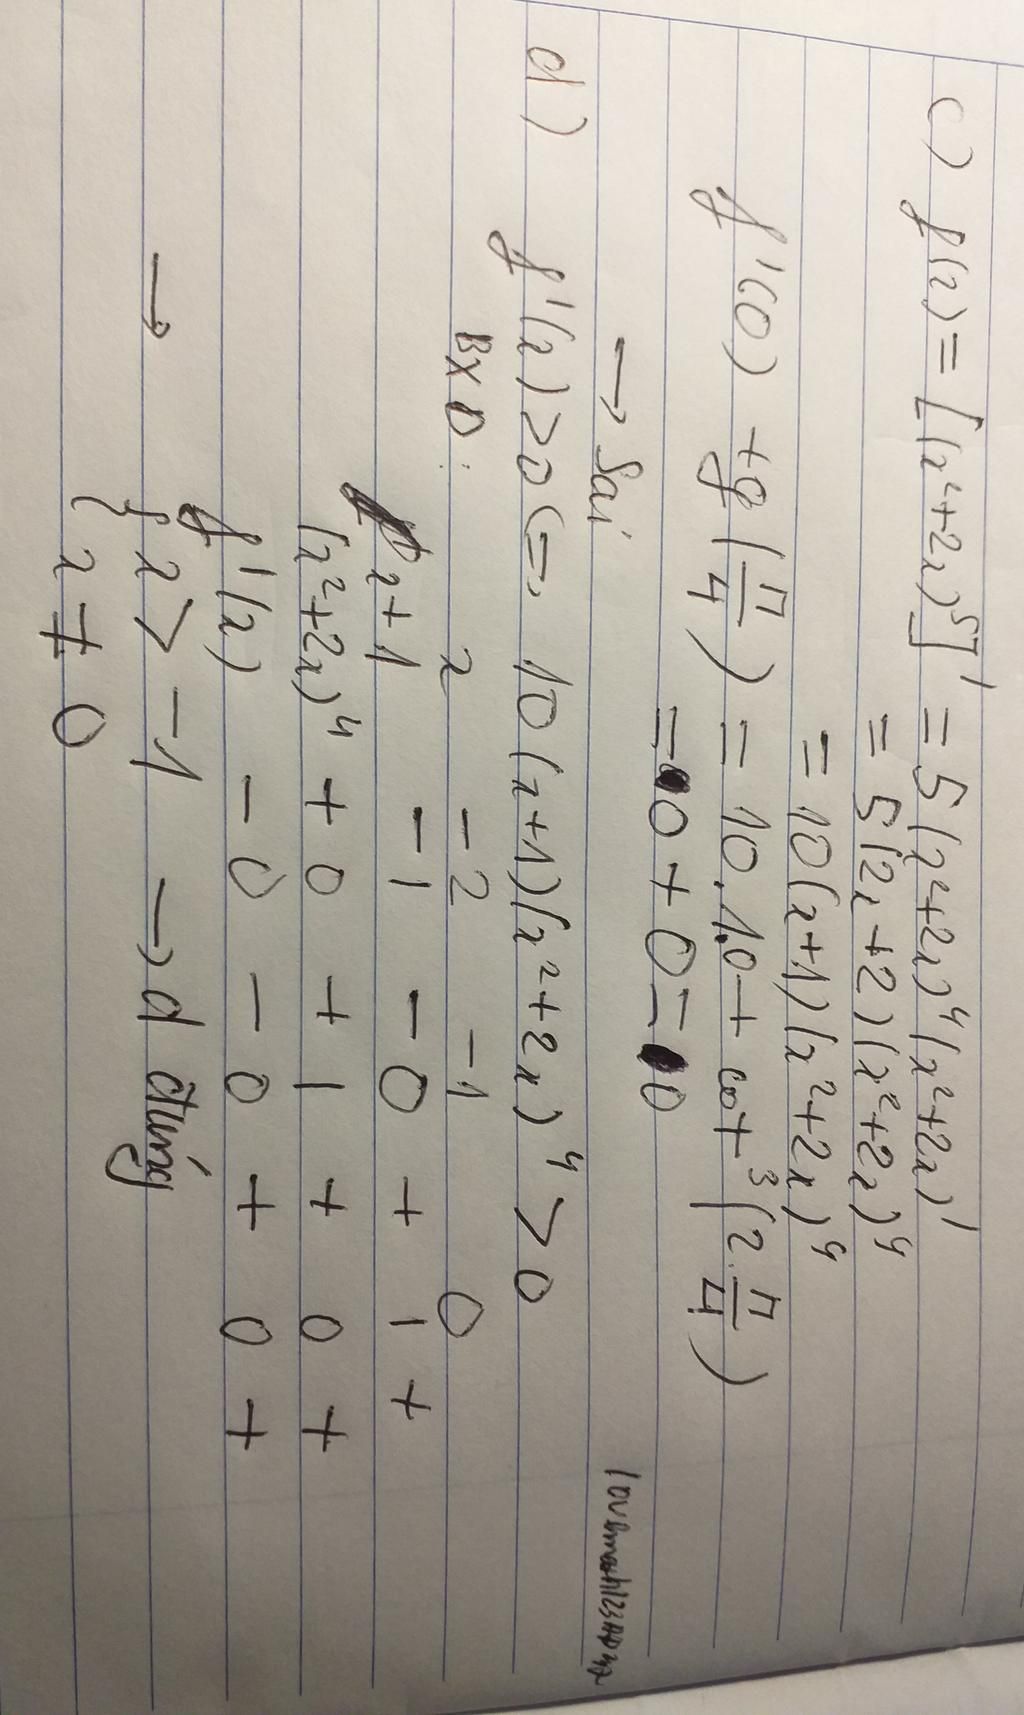 c) f'(x) = [(x²+2x)⁵]' = 5(x²+2x)⁴(x²+2x)'
= 5(2x+2)(x²+2x)⁴
= 10(x+1)(x²+2x)⁴
f'(0) + g(π/4) = 10.1.0 + cot³(2.π/4)
= 0 + 0 = 0
→ Sai
d) f'(x) > 0 <=> 10(x+1)(x²+2x)⁴ > 0
BXD: x -2 -1 0
x+1 - | - 0 + | +
(x²+2x)⁴ + 0 + | + 0 +
f'(x) - 0 - 0 + 0 +
→ { x > -1 → d đúng
{ x ≠ 0